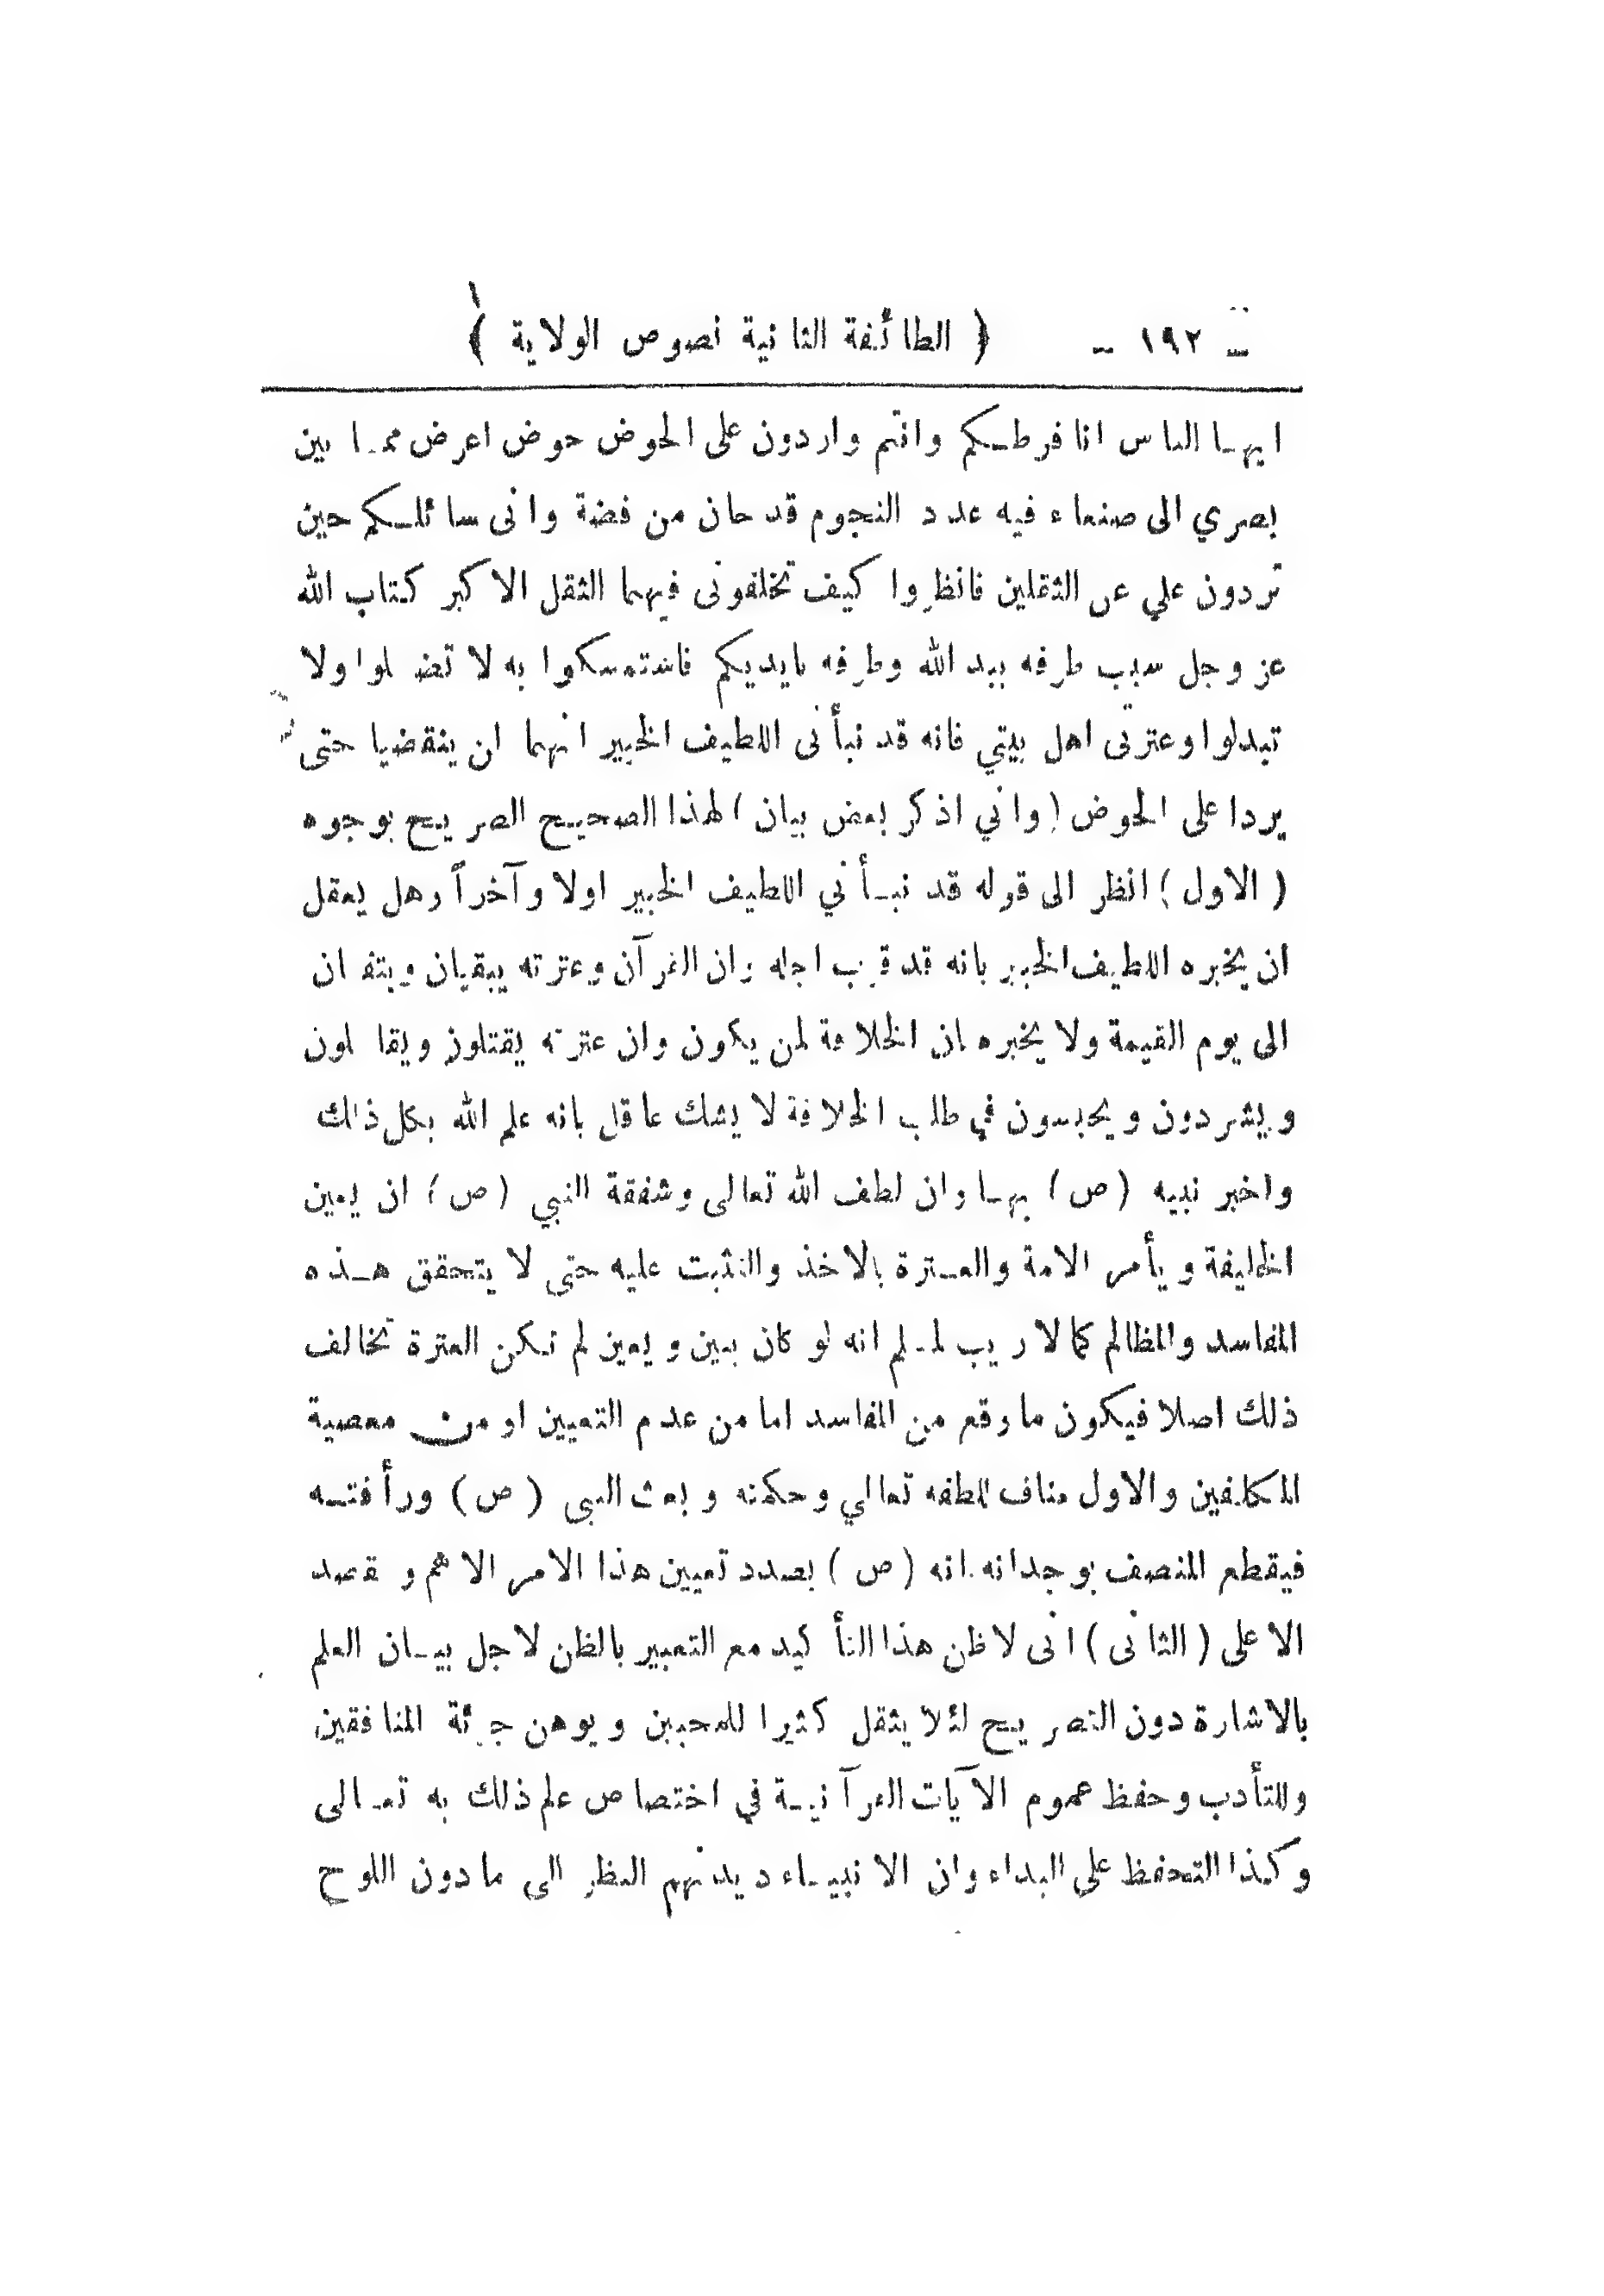 - ١٩٢ - ﴿ الطائفة الثانية نصوص الولاية ﴾
ايها الناس انا فرطكم وانتم واردون على الحوض حوض اعرض مما بين
بصري الى صنعاء فيه عدد النجوم قدحان من فضة وانى سائلكم حين
تردون علي عن الثقلين فانظروا كيف تخلفونى فيهما الثقل الاكبر كتاب الله
عز وجل سبب طرفه بيد الله وطرفه بايديكم فاستمسكوا به لا تضلوا ولا
تبدلوا وعترتى اهل بيتي فانه قد نبأنى اللطيف الخبير انهما ان ينقضيا حتى
يردا على الحوض (واني اذكر بعض بيان) لهذا الصحيح الصريح بوجوه
(الاول) انظر الى قوله قد نبأني اللطيف الخبير اولا وآخراً وهل يعقل
ان يخبره اللطيف الخبير بانه قد قرب اجله وان القرآن وعترته يبقيان ويتفان
الى يوم القيمة ولا يخبره بان الخلافة لمن يكون وان عترته يقتلون ويقاتلون
ويشردون ويحبسون في طلب الخلافة لا يشك عاقل بانه علم الله بكل ذلك
واخبر نبيه (ص) بها وان لطف الله تعالى وشفقة النبي (ص) ان يعين
الخليفة ويأمر الامة والعترة بالاخذ والتثبت عليه حتى لا يتحقق هذه
المفاسد والمظالم كما لا ريب لمسلم انه لو كان بين ويعين لم تكن العترة تخالف
ذلك اصلا فيكون ما وقع من المفاسد اما من عدم التعيين او من معصية
المكلفين والاول مناف للطفه تعالي وحكمته وبعث النبى (ص) ورأفته
فيقطع المنصف بوجدانه انه (ص) بصدد تعيين هذا الامر الاهم وقصد
الاعلى (الثانى) انى لاظن هذا التأكيد مع التعبير بالظن لاجل بيان العلم
بالاشارة دون التصريح لئلا يثقل كثيرا للمحبين ويوهن جرئة المنافقين
وللتأدب وحفظ عموم الآيات القرآنية في اختصاص علم ذلك به تعالى
وكذا التحفظ على البداء وان الانبياء ديدنهم النظر الى ما دون اللوح